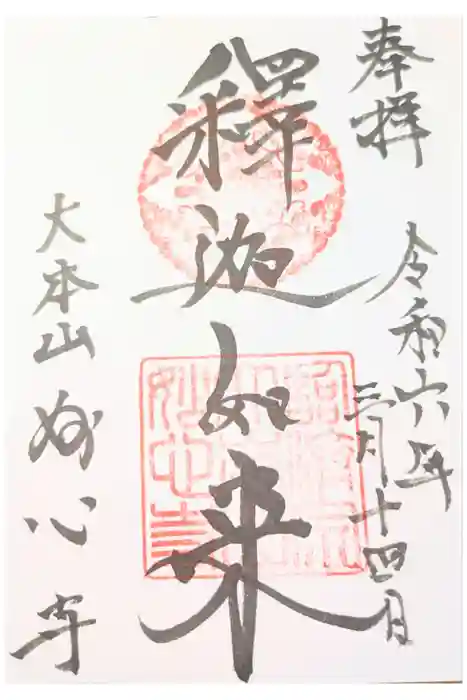 奉拝
令和六年
三月十四日
釋迦如来
大本山妙心寺